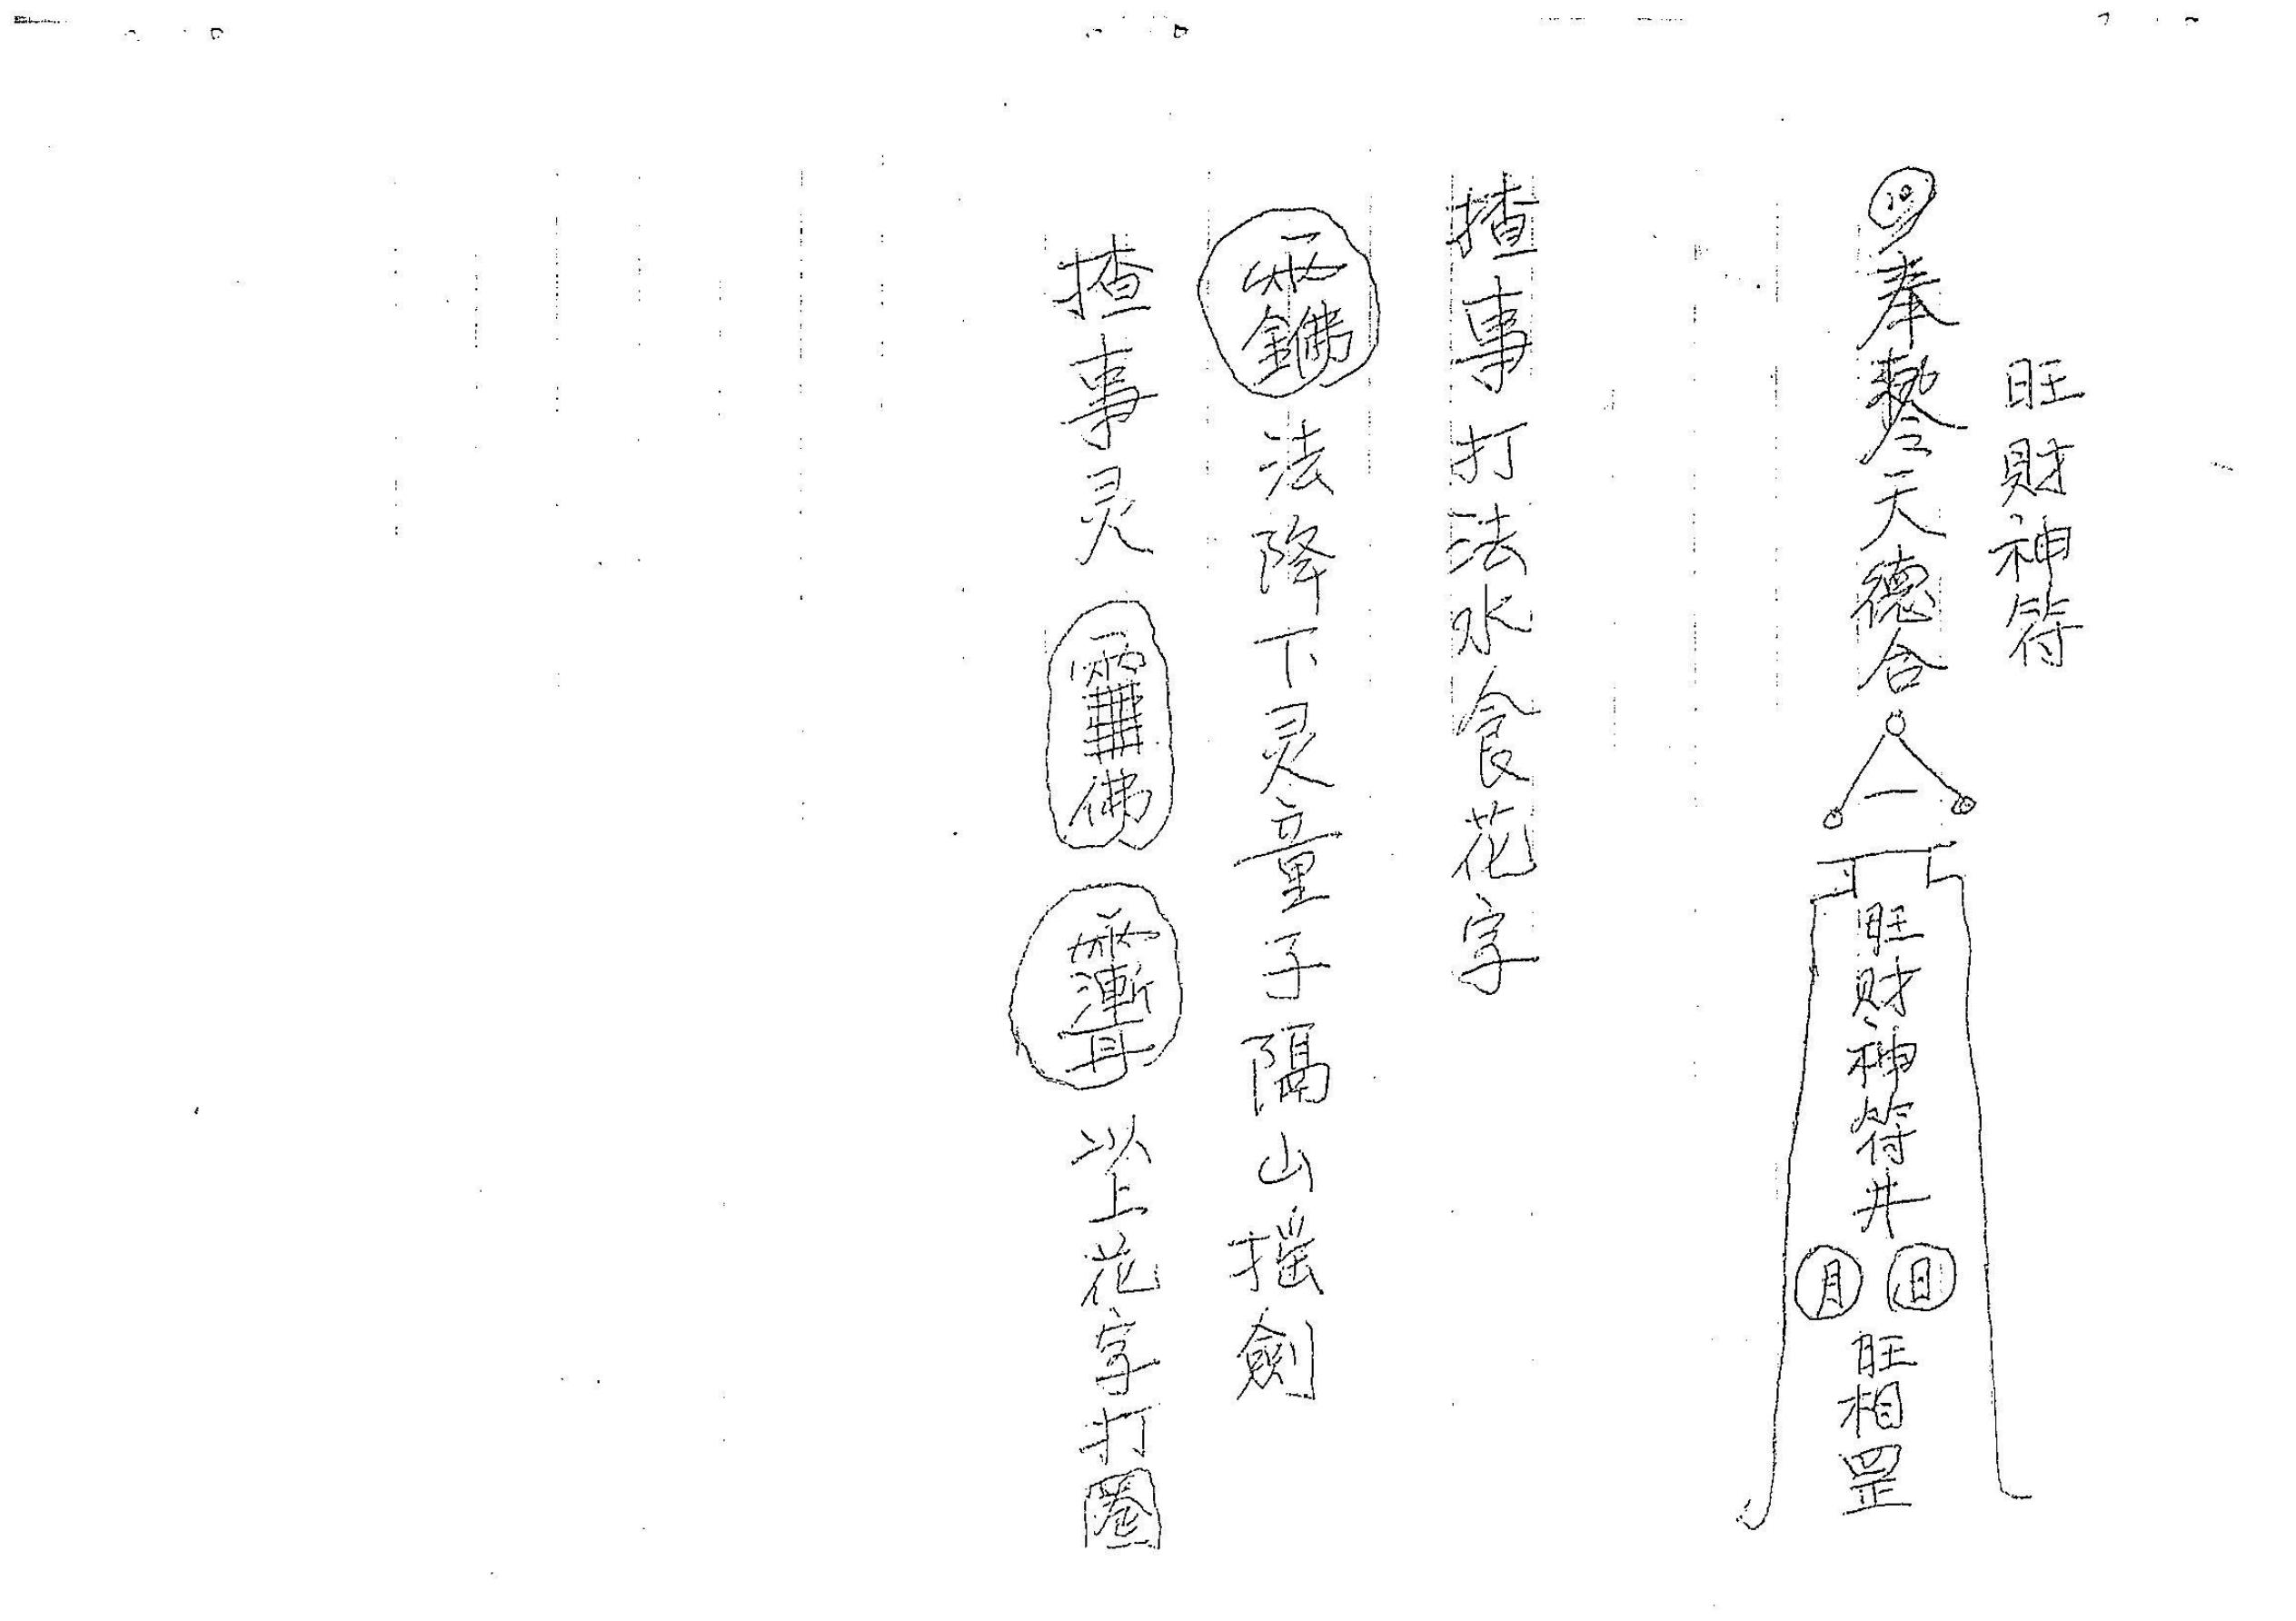 旺財神符
奉勅令天德合
一
旺財神符井
日 月
旺相罡
揸事打法水食花字
法降下灵童子隔山摇劍
揸事灵
以上花字打圈